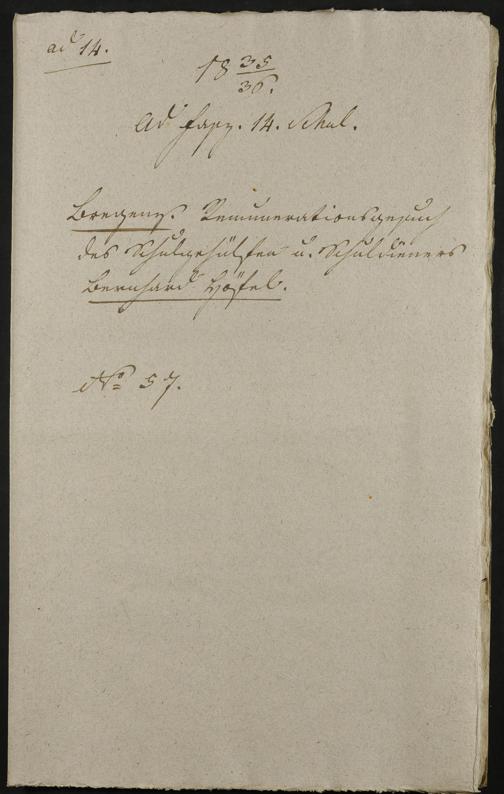 ad 14.
18 35/36.
Ad Fasz. 14. Schul.
Bregenz. Remunerationsgesuch
des Schulgehülfen u. Schuldieners
Bernhard Höfel.
No 57.